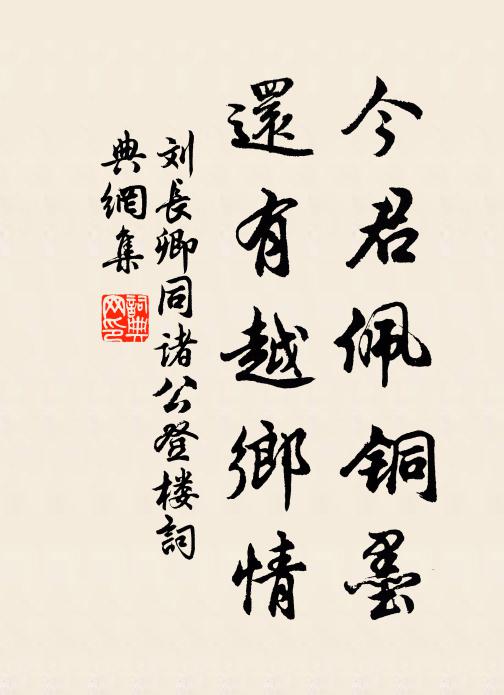 今君佩铜墨
還有越鄉情
刘長卿同诸公登楼詞
典網集
詞典网印